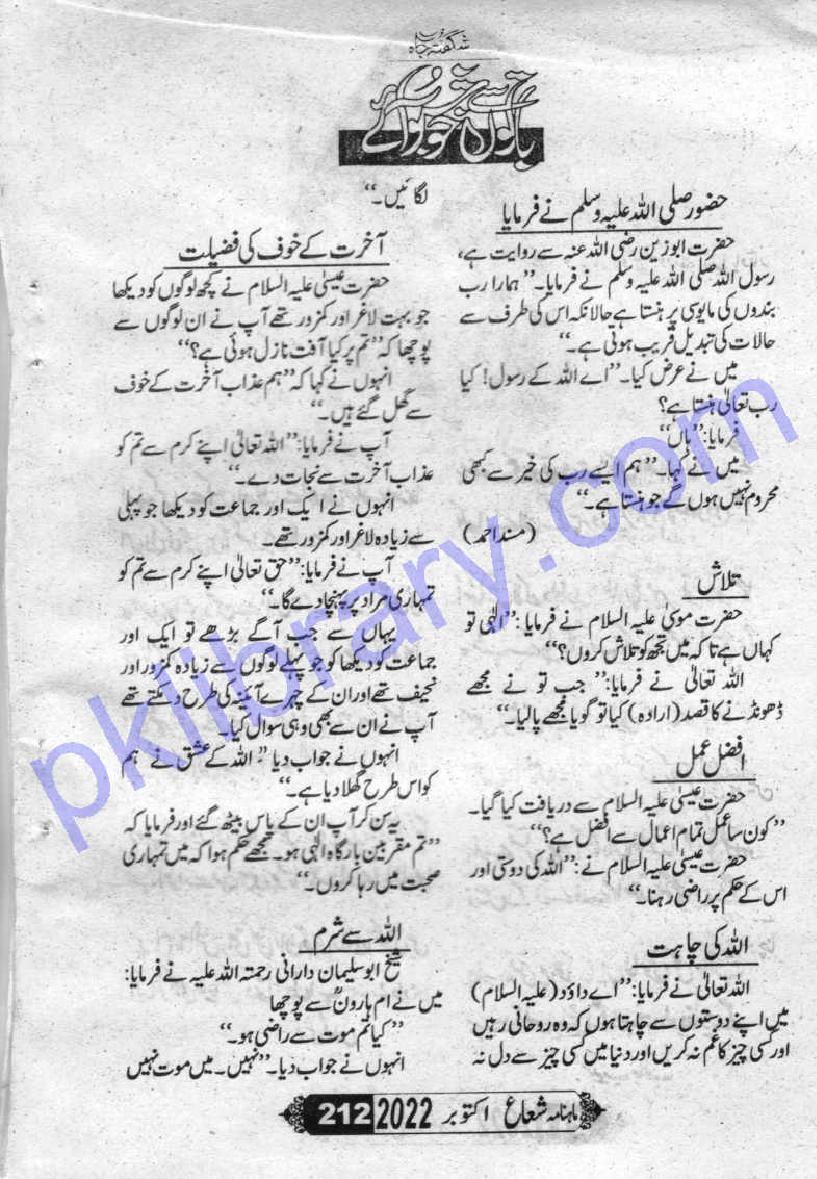 شگفتہ جاہ
باتوں سے خوشبو آئے
حضور صلی اللہ علیہ وسلم نے فرمایا
حضرت ابوزین رضی اللہ عنہ سے روایت ہے،
رسول اللہ صلی اللہ علیہ وسلم نے فرمایا۔ ’’ہمارا رب
بندوں کی مایوسی پر ہنستا ہے حالانکہ اس کی طرف سے
حالات کی تبدیل قریب ہوتی ہے۔‘‘
میں نے عرض کیا۔ ’’اے اللہ کے رسول! کیا
رب تعالیٰ ہنستا ہے؟
فرمایا: ’’ہاں‘‘
میں نے کہا۔ ’’ہم ایسے رب کی خیر سے کبھی
محروم نہیں ہوں گے جو ہنستا ہے۔‘‘
(مسند احمد)
تلاش
حضرت موسیٰ علیہ السلام نے فرمایا: ’’الٰہی تو
کہاں ہے تاکہ میں تجھ کو تلاش کروں؟‘‘
اللہ تعالیٰ نے فرمایا: ’’جب تو نے مجھے
ڈھونڈنے کا قصد (ارادہ) کیا تو گویا مجھے پا لیا۔‘‘
افضل عمل
حضرت عیسیٰ علیہ السلام سے دریافت کیا گیا۔
’’کون سا عمل تمام اعمال سے افضل ہے؟‘‘
حضرت عیسیٰ علیہ السلام نے: ’’اللہ کی دوستی اور
اس کے حکم پر راضی رہنا۔‘‘
اللہ کی چاہت
اللہ تعالیٰ نے فرمایا: ’’اے داؤد (علیہ السلام)
میں اپنے دوستوں سے چاہتا ہوں کہ وہ روحانی رہیں
اور کسی چیز کا غم نہ کریں اور دنیا میں کسی چیز سے دل نہ
لگائیں۔‘‘
آخرت کے خوف کی فضیلت
حضرت عیسیٰ علیہ السلام نے کچھ لوگوں کو دیکھا
جو بہت لاغر اور کمزور تھے آپ نے ان لوگوں سے
پوچھا کہ ’’تم پر کیا آفت نازل ہوئی ہے؟‘‘
انہوں نے کہا کہ ’’ہم عذاب آخرت کے خوف
سے گھل گئے ہیں۔‘‘
آپ نے فرمایا: ’’اللہ تعالیٰ اپنے کرم سے تم کو
عذاب آخرت سے نجات دے۔‘‘
انہوں نے ایک اور جماعت کو دیکھا جو پہلی
سے زیادہ لاغر اور کمزور تھے۔
آپ نے فرمایا: ’’حق تعالیٰ اپنے کرم سے تم کو
تمہاری مراد پر پہنچا دے گا۔‘‘
یہاں سے جب آگے بڑھے تو ایک اور
جماعت کو دیکھا کو جو پہلے لوگوں سے زیادہ کمزور اور
نحیف تھے اور ان کے چہرے آئینہ کی طرح دمکتے تھے
آپ نے ان سے بھی وہی سوال کیا۔
انہوں نے جواب دیا ’’۔اللہ کے عشق نے ہم
کو اس طرح گھلا دیا ہے۔‘‘
یہ سن کر آپ ان کے پاس بیٹھ گئے اور فرمایا کہ
’’تم مقربین بارگاہ الٰہی ہو۔ مجھے حکم ہوا کہ میں تمہاری
صحبت میں رہا کروں۔‘‘
اللہ سے شرم
شیخ ابو سلیمان دارانی رحمتہ اللہ علیہ نے فرمایا:
میں نے ام ہارونؒ سے پوچھا
’’کیا تم موت سے راضی ہو۔‘‘
انہوں نے جواب دیا۔ ’’نہیں۔ میں موت نہیں
ماہنامہ شعاع اکتوبر 2022 212
pklibrary.com